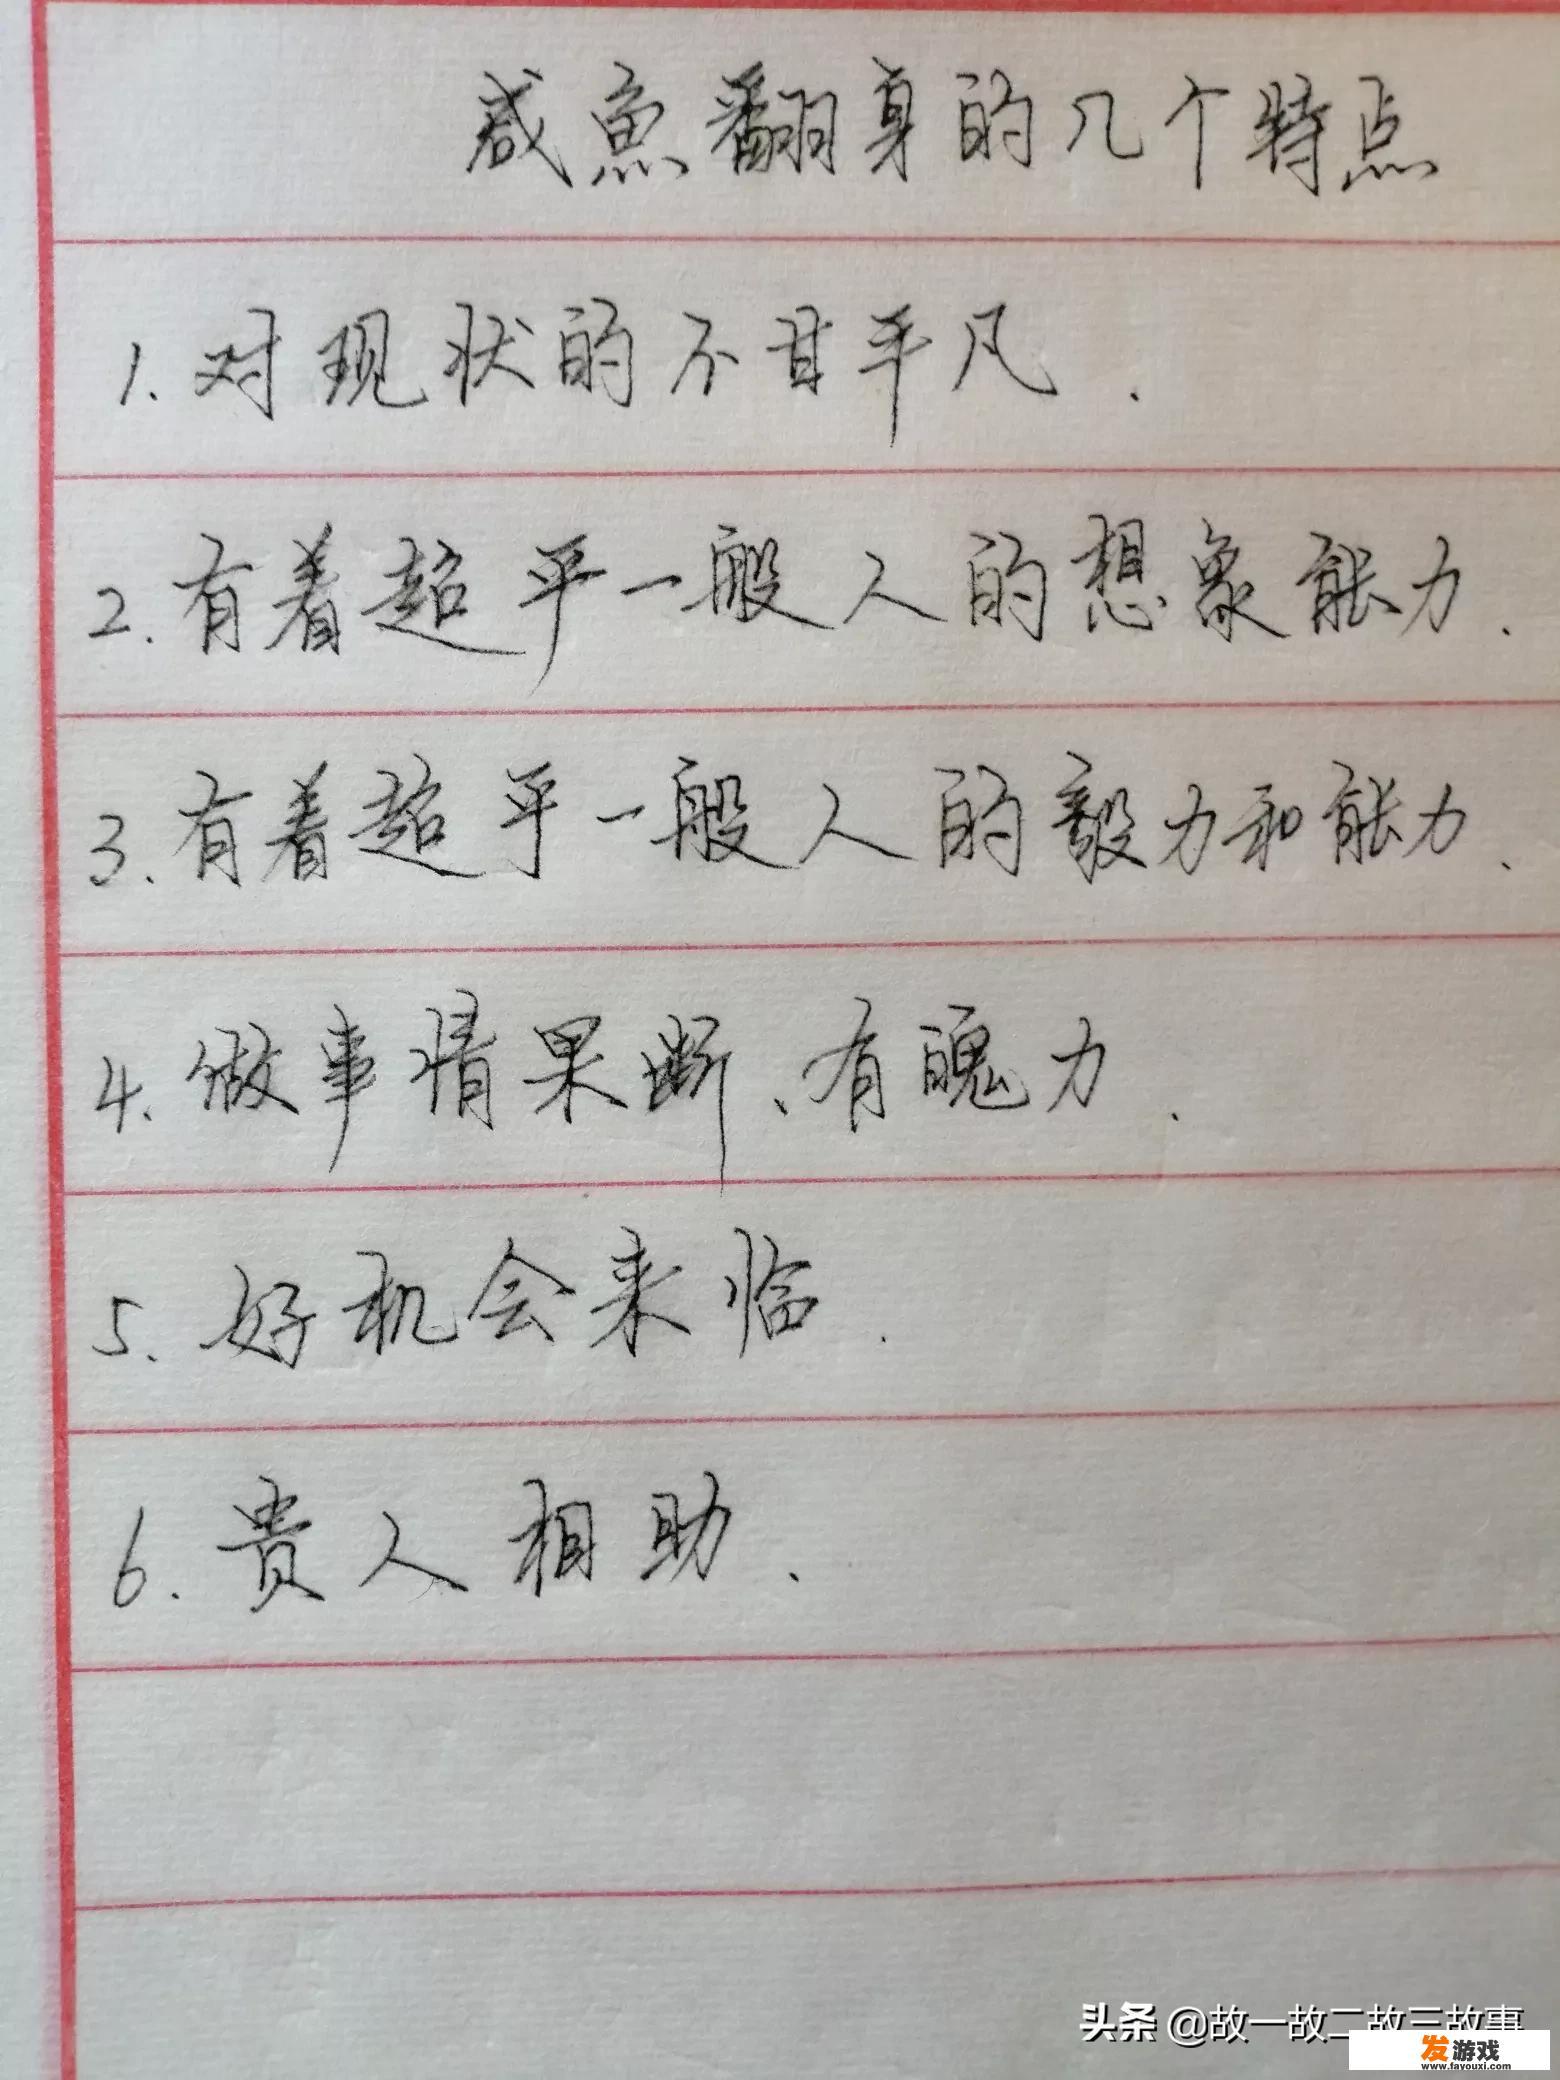 咸鱼翻身的几个特点
1.对现状的不甘平凡.
2.有着超乎一般人的想象能力.
3.有着超乎一般人的毅力和能力.
4.做事情果断、有魄力.
5.好机会来临.
6.贵人相助.
头条 @故一故二故三故事
发游戏
www.fayouxi.com